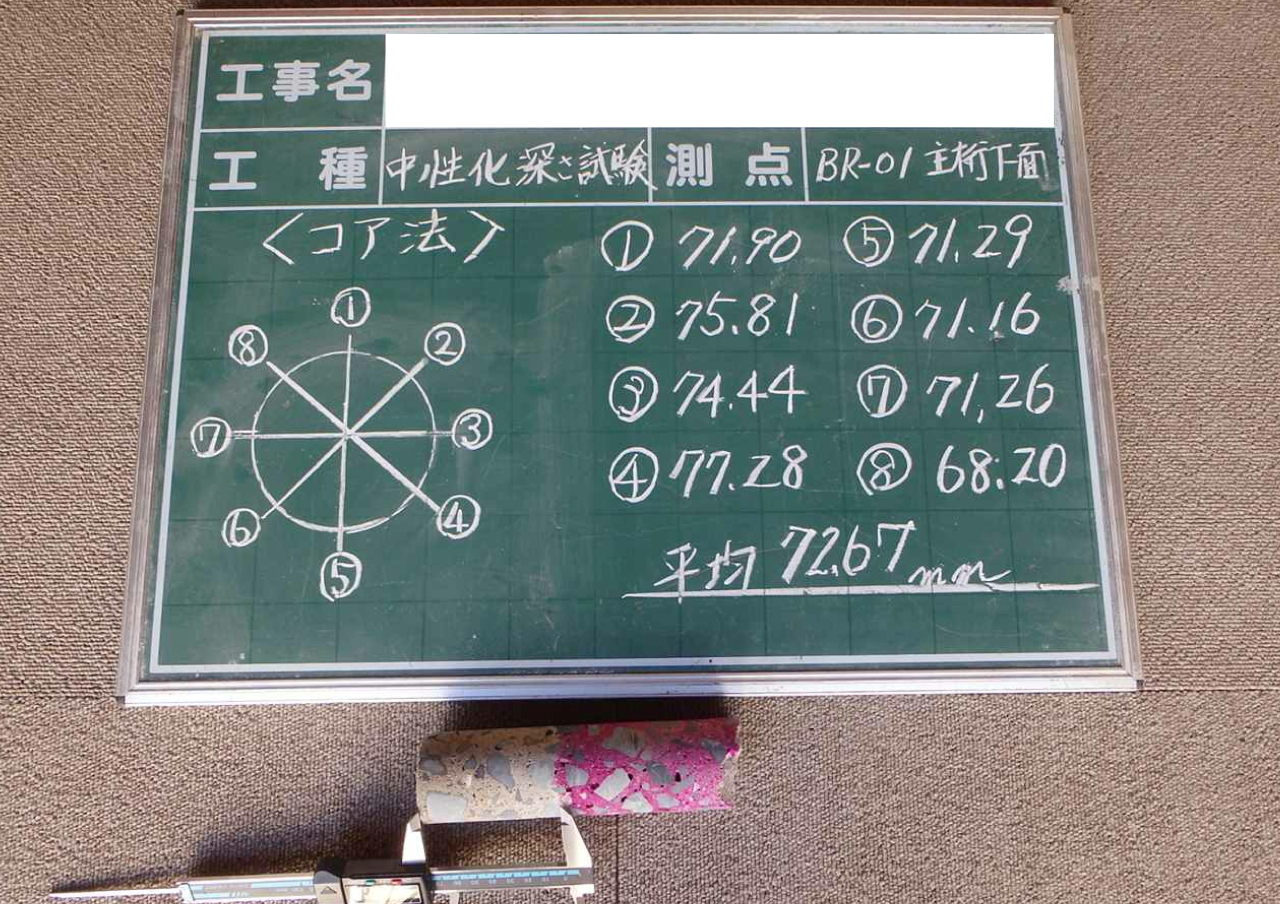 工事名
工種 中性化深さ試験 測点 BR-01 主桁下面
〈コア法〉
① 71.90 ⑤ 71.29
② 75.81 ⑥ 71.16
③ 74.44 ⑦ 71.26
④ 77.28 ⑧ 68.20
平均 72.67mm
①
⑧ ②
⑦ ③
⑥ ④
⑤